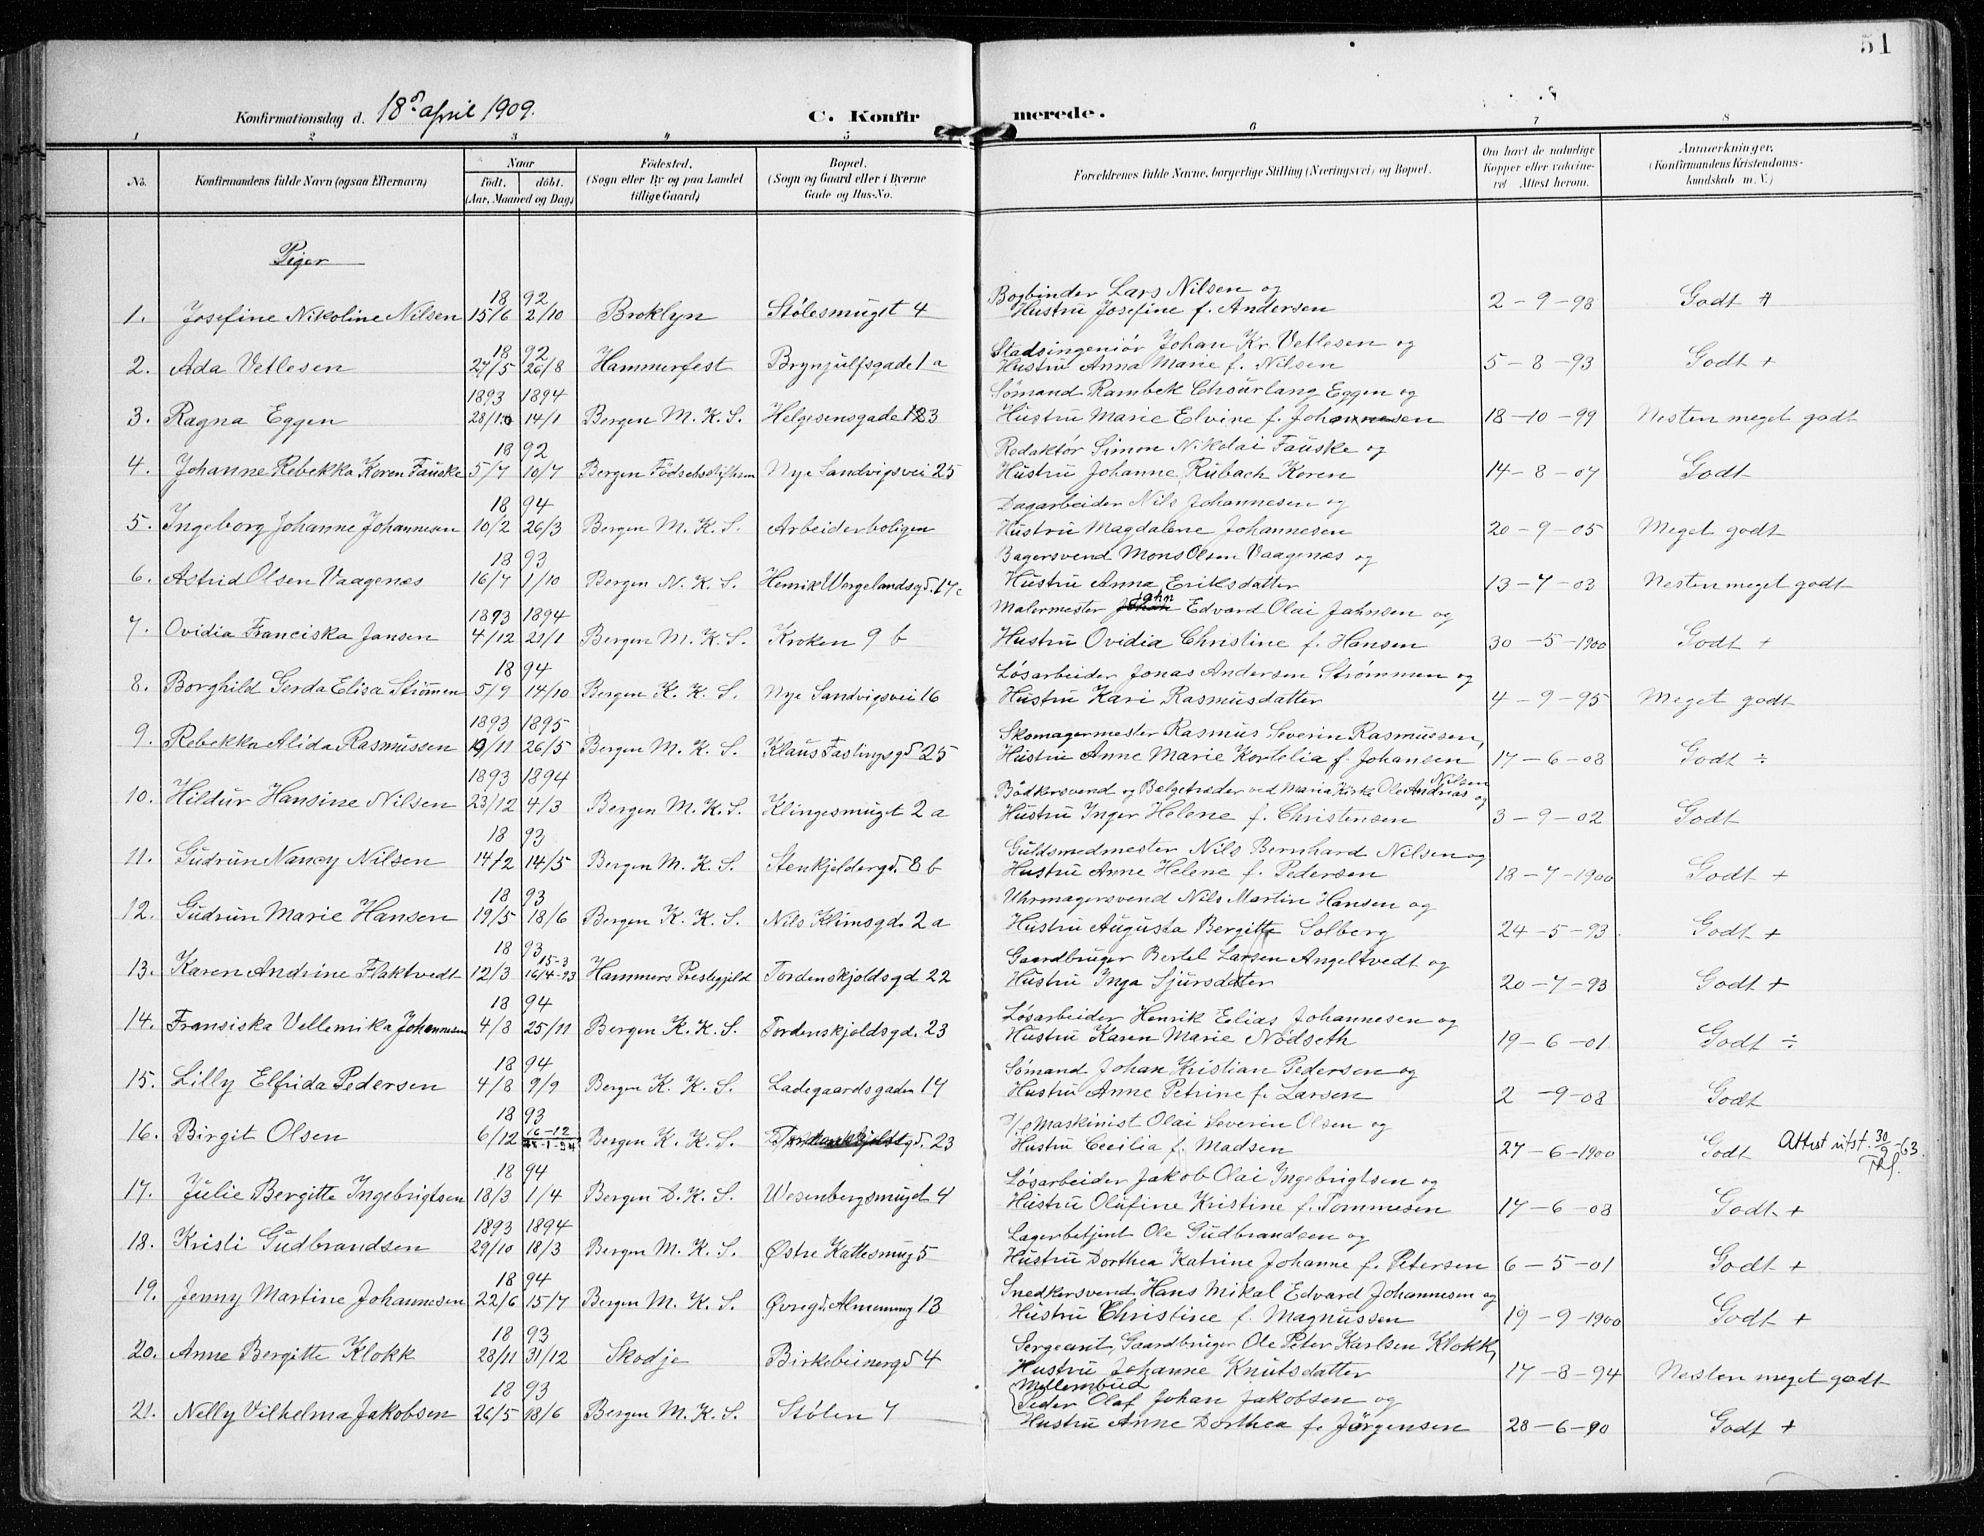 51
Konfirmationsdag d. 18de april 1909.
C. Konfirmerede.
1 2 3 4 5 6 7 8
No.
Konfirmandens fulde Navn (ogsaa Efternavn)
Naar
født. døbt.
(Aar, Maaned og Dag)
Fødested.
(Sogn eller By og paa Landet
tillige Gaard)
Bopæl.
(Sogn og Gaard eller i Byerne
Gade og Hus-No.
Forældrenes fulde Navne, borgerlige Stilling (Næringsvei) og Bopæl.
Om havt de naturlige
Kopper eller vakcineret
Attest herom.
Anmærkninger.
(Konfirmandens Kristendomskundskab
m. V.)
Piger
18 92 Bogbinder Lars Nilsen og
1. Josefine Nikoline Nilsen 15/6 2/10 Broklyn Stølesmuget 4 Hustru Josefine f. Andersen 2-9-98 Godt +
18 92 Stadsingeniør Johan Kr. Vetlesen og
2. Ada Vetlesen 27/5 26/8 Hammerfest Brynjulfsgade 1 a Hustru Anna Marie f. Nilsen 5-8-93 Godt +
1893 1894 Sømand Rambek Eggen og
3. Ragna Eggen 28/10 14/1 Bergen M. K. S. Helgesensgade 23 Hustru Marie Elvire f. Johannesen 18-10-99 Nesten meget godt
18 92 Redaktør Simon Nikolai Fauske og
4. Johanne Rebekka Koren Fauske 5/7 10/7 Bergen Fødselsstiftelsen Nye Sandvigsvei 25 Hustru Johanne Rubach Koren 14-8-07 Godt
18 94 Dagarbeider Nils Johannesen og
5. Ingeborg Johanne Johannesen 10/2 26/3 Bergen M. K. S. Arbeiderboligen Hustru Magdalene Johannesen 20-9-05 Meget godt
18 93 Bagersvend Mons Olsen Vaagenæs og
6. Astrid Olsen Vaagenæs 16/7 1/10 Bergen N. K. S. Henrik Wergelandsgd. 17c Hustru Anna Eriksdatter 13-7-03 Nesten meget godt
1893 1894 Malermester Johan Jahn Edvard Olai Jahnsen og
7. Ovidia Franciska Jansen 4/12 21/1 Bergen M. K. S. Kroken 9 b Hustru Ovidia Christine f. Hansen 30-5-1900 Godt +
18 94 Løsarbeider Jonas Andersen Strømmen og
8. Borghild Gerda Elisa Strømen 5/9 14/10 Bergen K. K. S. Nye Sandvigsvei 16 Hustru Kari Rasmusdatter 4-9-95 Meget godt
1893 1895 Skomagermester Rasmus Severin Rasmussen,
9. Rebekka Alida Rasmussen 19/11 26/5 Bergen M. K. S. Klaus Fastingsgd 25 Hustru Anne Marie Kortelia f. Johansen 17-6-08 Godt ÷
1893 1894 Bødkersvend og Bælgetræder ved Mariakirke Ole Andrias Nilsen og
10. Hildur Hansine Nilsen 23/12 4/3 Bergen M. K. S. Klingesmuget 2 a Hustru Inger Helene f. Christensen 3-9-02 Godt
18 93 Guldsmedmester Nils Bernhard Nilsen og
11. Gudrun Nancy Nilsen 14/2 14/5 Bergen M. K. S. Stenkjeldergd. 8 b Hustru Anne Helene f. Pedersen 18-7-1900 Godt +
18 93 Uhrmagersvend Nils Martin Hansen og
12. Gudrun Marie Hansen 19/5 18/6 Bergen K. K. S. Nils Klimsgd. 2 a Hustru Augusta Bergitte Solberg 24-5-93. Godt +
18 93 15-3 Gaardbruger Bertel Larsen Angeltvedt og
13. Karen Andrine Flaktvedt 12/3 16/4-93 Hammers Prestegjeld Tordenskjoldsgd 22 Hustru Inga Sjursdatter 20-7-93 Godt +
18 94 Løsarbeider Henrik Elias Johannesen og
14. Fransiska Vellemika Johannesen 4/8 25/11 Bergen K. K. S. Tordenskjoldsgd. 23 Hustru Karen Marie Nødseth 19-6-01 Godt ÷
18 94 Sømand Johan Kristian Pedersen og
15. Lilly Elfrida Pedersen 4/8 9/9 Bergen K. K. S. Ladegaardsgaden 14 Hustru Anne Petrine f. Larsen 2-9-08 Godt
18 93 Maskinist Olai Severin Olsen og
16. Birgit Olsen 6/12 16-12 Bergen K. K. S. Tordenskjoldsgd. 23 Hustru Cecilia f. Madsen 27-6-1900 Godt Attest utst. 30/9-63.
18 94 Løsarbeider Jakob Olai Ingebrigtsen og
17. Julie Bergitte Ingebrigtsen 18/3 1/4 Bergen D. K. S. Wesenbergsmuget 4 Hustru Olufine Kristine f. Tommesen 17-6-08 Godt +
1893 1894 Lagerbetjent Ole Gudbrandsen og
18. Kristi Gudbrandsen 29/10 18/3 Bergen M. K. S. Østre Kattesmug 5 Hustru Dorthea Katrine Johanne f. Petersen 6-5-01 Godt +
18 94 Snedkersvend Hans Mikal Edvard Johannesen og
19. Jenny Martine Johannesen 22/6 15/7 Bergen M. K. S. Øvregd. Almenning 13 Hustru Christine f. Magnussen 19-9-1900 Godt +
18 93 Sergeant, Gaardbruger Ole Peter Karlsen Klokk,
20. Anne Bergitte Klokk 28/11 31/12 Skodje Birkebeinergd 4 Hustru Johanne Knutsdatter 17-8-94 Nesten meget godt
Mellembud
18 93 Peder Olaf Johan Jakobsen og
21. Nelly Vilhelma Jakobsen 26/5 18/6 Bergen M. K. S. Stølen 7 Hustru Anne Dorthea f. Jørgensen 28-6-90 Godt +